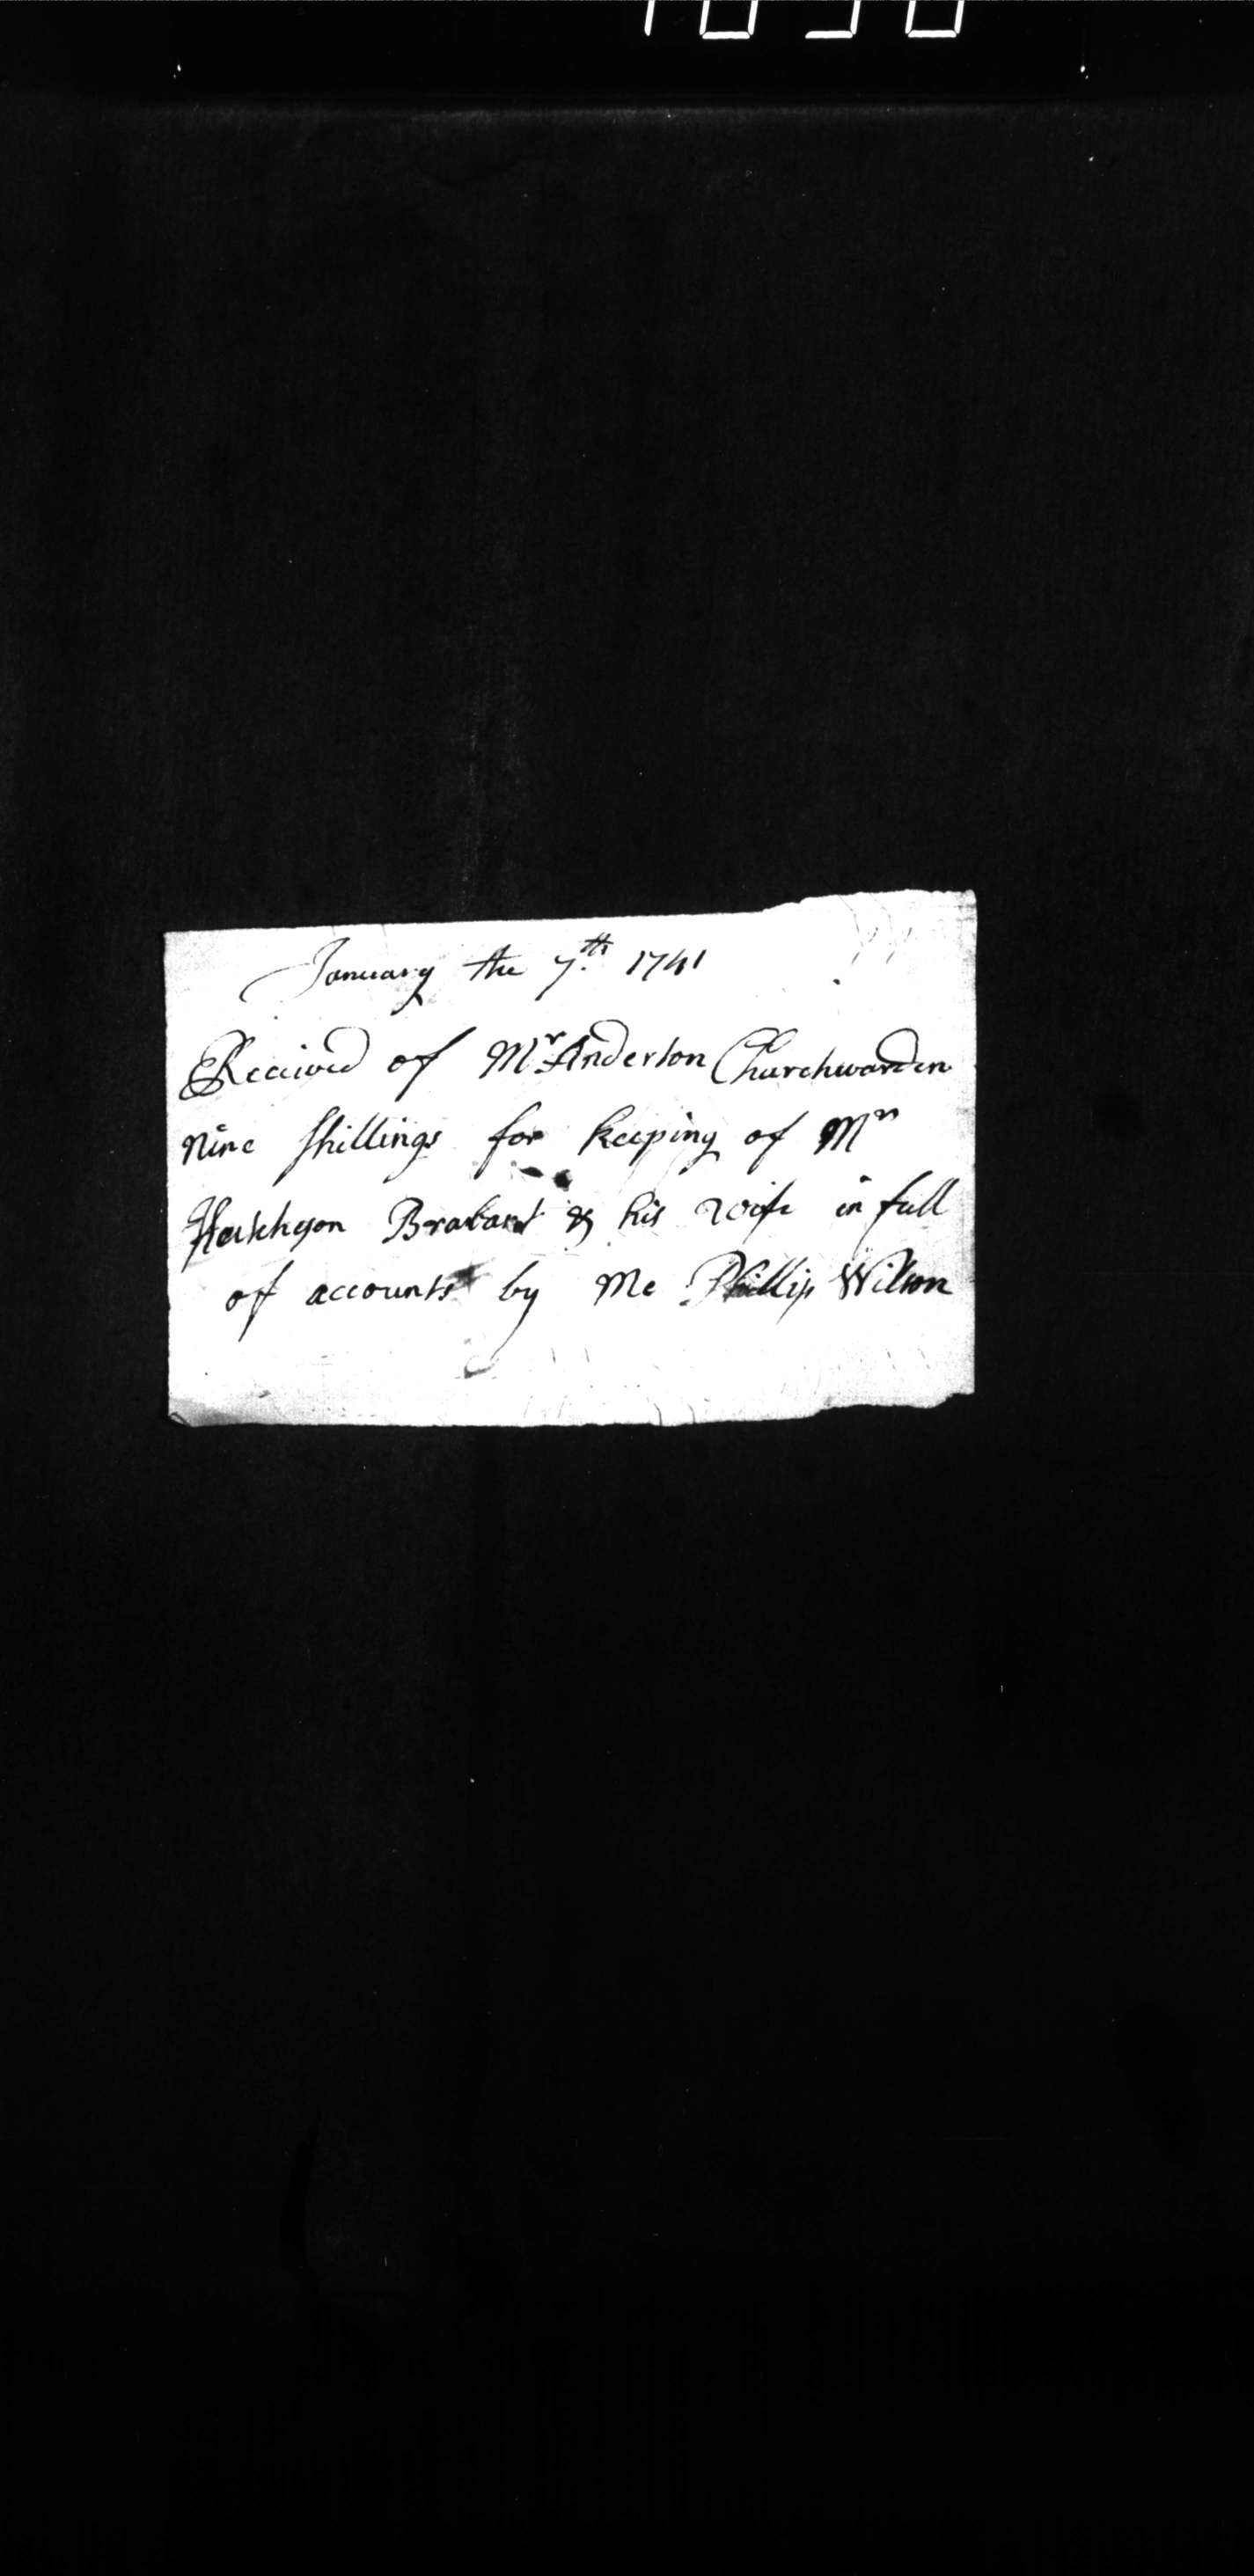 January the 7th. 1741
Received of Mr. Anderson Churchwarden
Nine Shillings for keeping of Mrs
Brabant & his wife in full
of accounts by Me Phillip Wilson